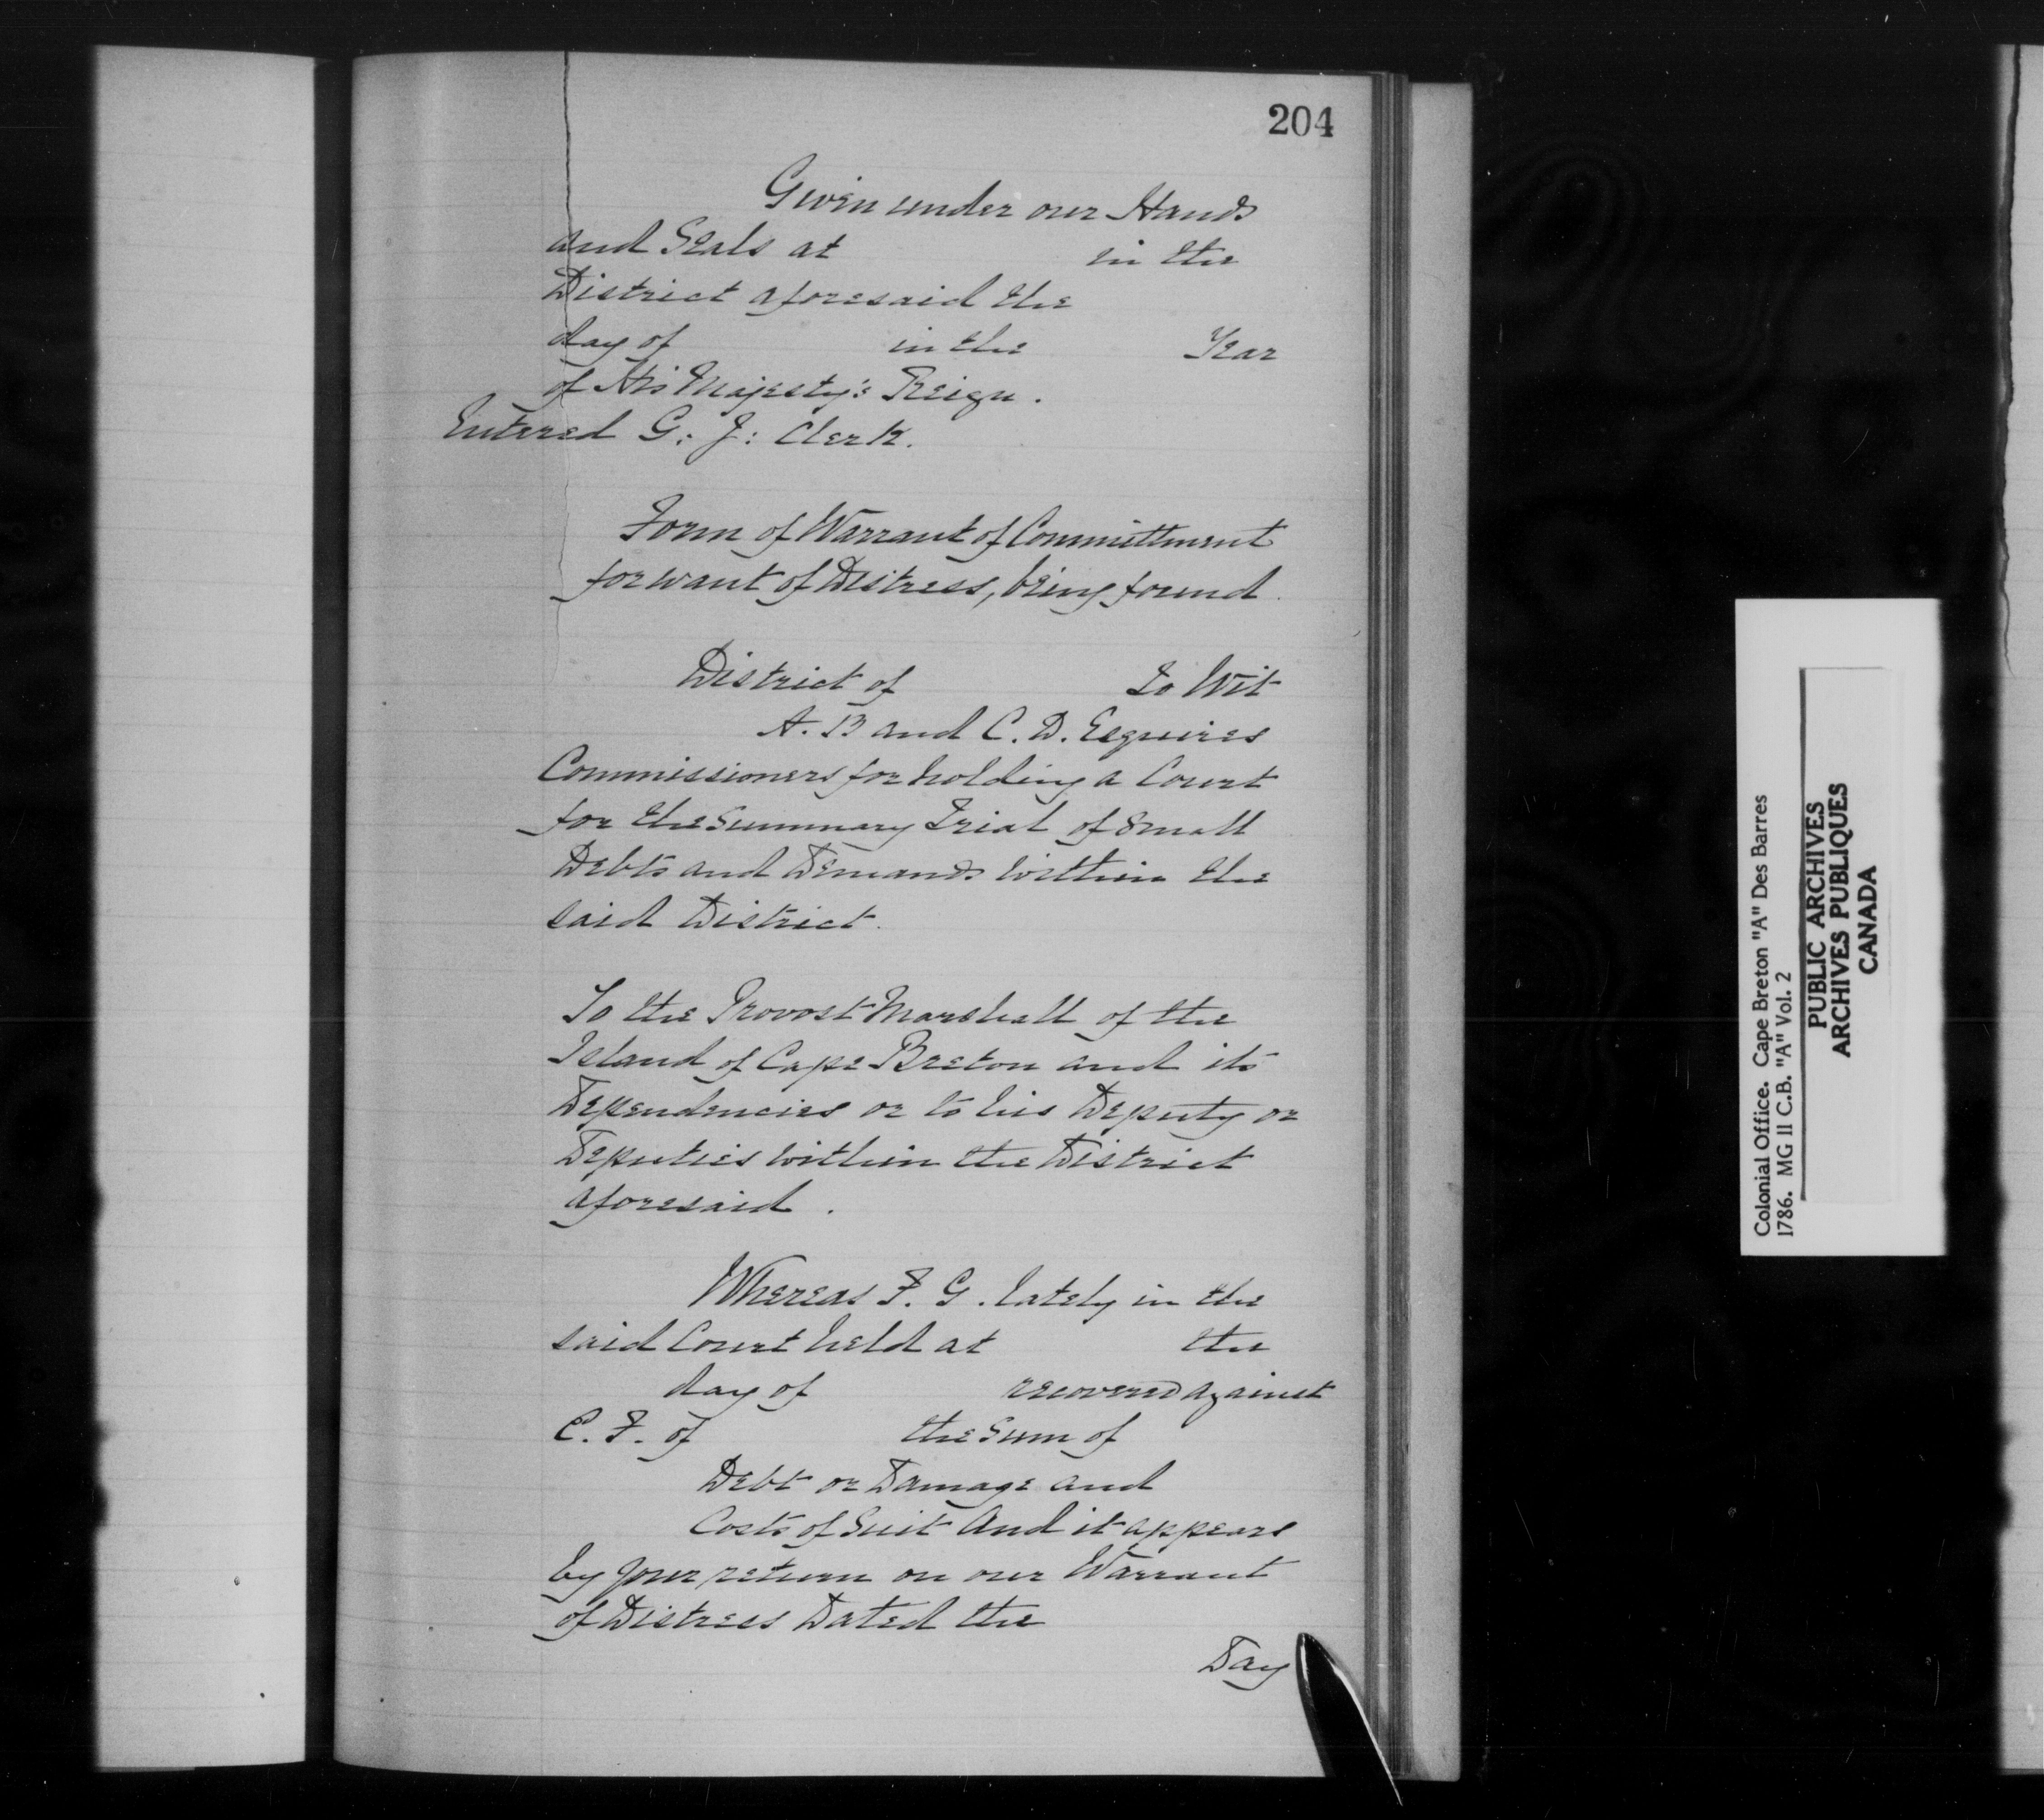 204
Given under our Hands
and Seals at in the
District aforesaid the
day of in the Year
of His Majesty's Reign.
Entered G: J: Clerk.
Form of Warrant of Committment
for want of Distress, being found.
District of to Wit
A. B and C. D. Esquires
Commissioners for holding a Court
for the Summary Trial of Small
Debts and Demands within the
said District.
To the Provost Marshall of the
Island of Cape Breton and its
Dependencies or to his Deputy or
Deputies within the District
aforesaid.
Whereas F. G. lately in the
said Court held at the
day of recovered against
C. F. of the Sum of
Debt or Damage and
Costs of Suit And it appears
by your return on our Warrant
of Distress Dated the
Day
Colonial Office. Cape Breton "A" Des Barres
1786. MG 11 C.B. "A" Vol. 2
PUBLIC ARCHIVES
ARCHIVES PUBLIQUES
CANADA